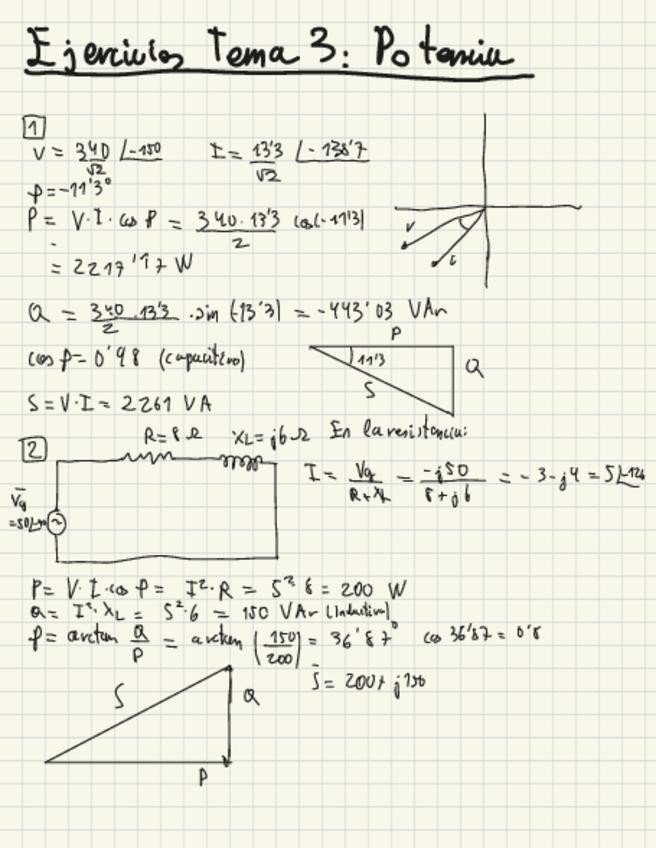 Ejercicios Tema 3: Potencia
1
V = 340/√2 ∠-150   I = 13'3/√2 ∠-138'7
φ = -11'3°
P = V·I·cos φ = 340·13'3/2 cos(-11'3)
= 2217'17 W
Q = 340·13'3/2 · sin(-13'3) = -443'03 VAr
cos φ = 0'98 (capacitivo)
S = V·I = 2261 VA
V
i
P
11'3
Q
S
2
R = 8 Ω   XL = j6 Ω   En la resistencia:
V̄g = 50∠-90
I = Vg/(R+XL) = -j50/(8+j6) = -3-j4 = 5∠-126
P = V·I·cos φ = I²·R = 5²·8 = 200 W
Q = I²·XL = 5²·6 = 150 VAr (Inductivo)
φ = arctan Q/P = arctan (150/200) = 36'87°   cos 36'87 = 0'8
S̄ = 200 + j150
S
Q
P